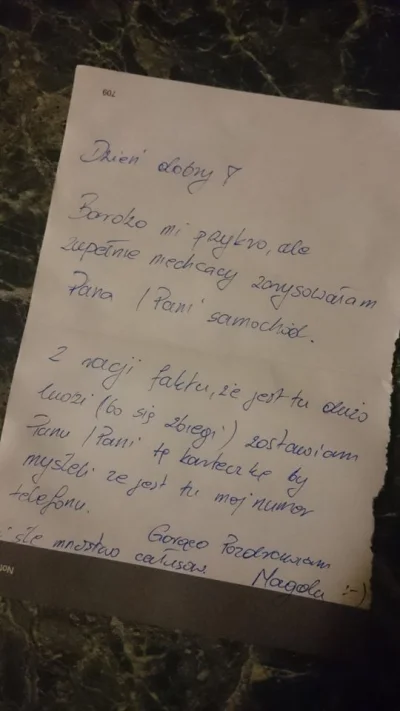 709
Dzień dobry!
Bardzo mi przykro, ale
zupełnie niechcący zarysowałam
Pana / Pani samochód.
Z racji faktu, że jest tu dużo
ludzi (bo się zbiegli) zostawiam
Panu / Pani tę karteczkę by
myśleli że jest tu mój numer
telefonu.
Gorąco Pozdrawiam
i ślę mnóstwo całusów
Magda :-)